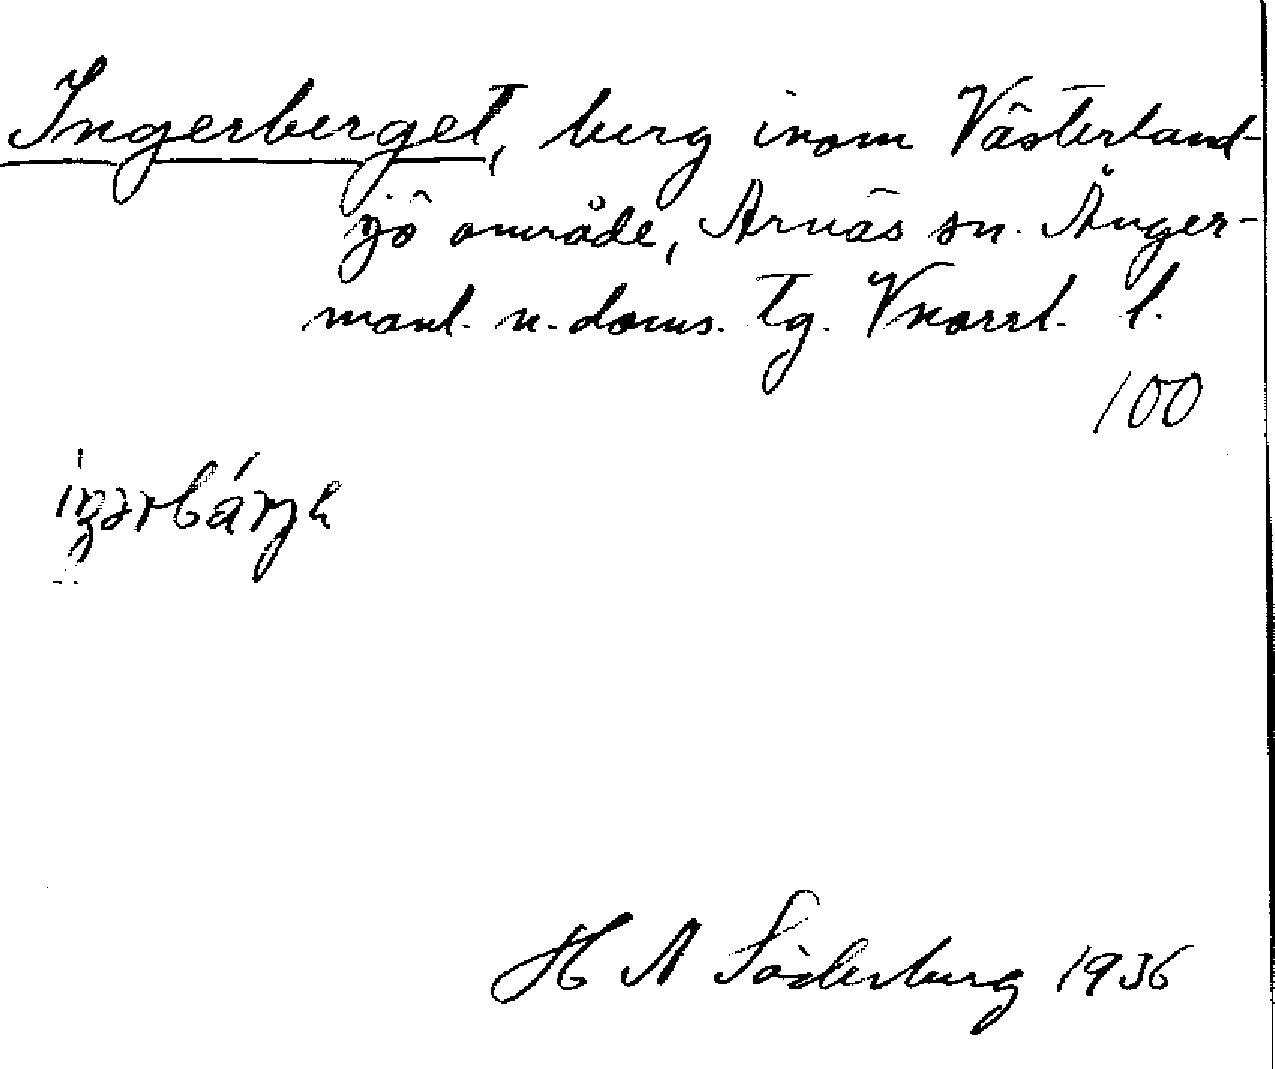 Ingerberget, berg inom Västerland-
sjö område, Arnäs sn. Ånger-
manl. n. doms. tg. Vnorrl. l.
100
H A Söderberg 1936